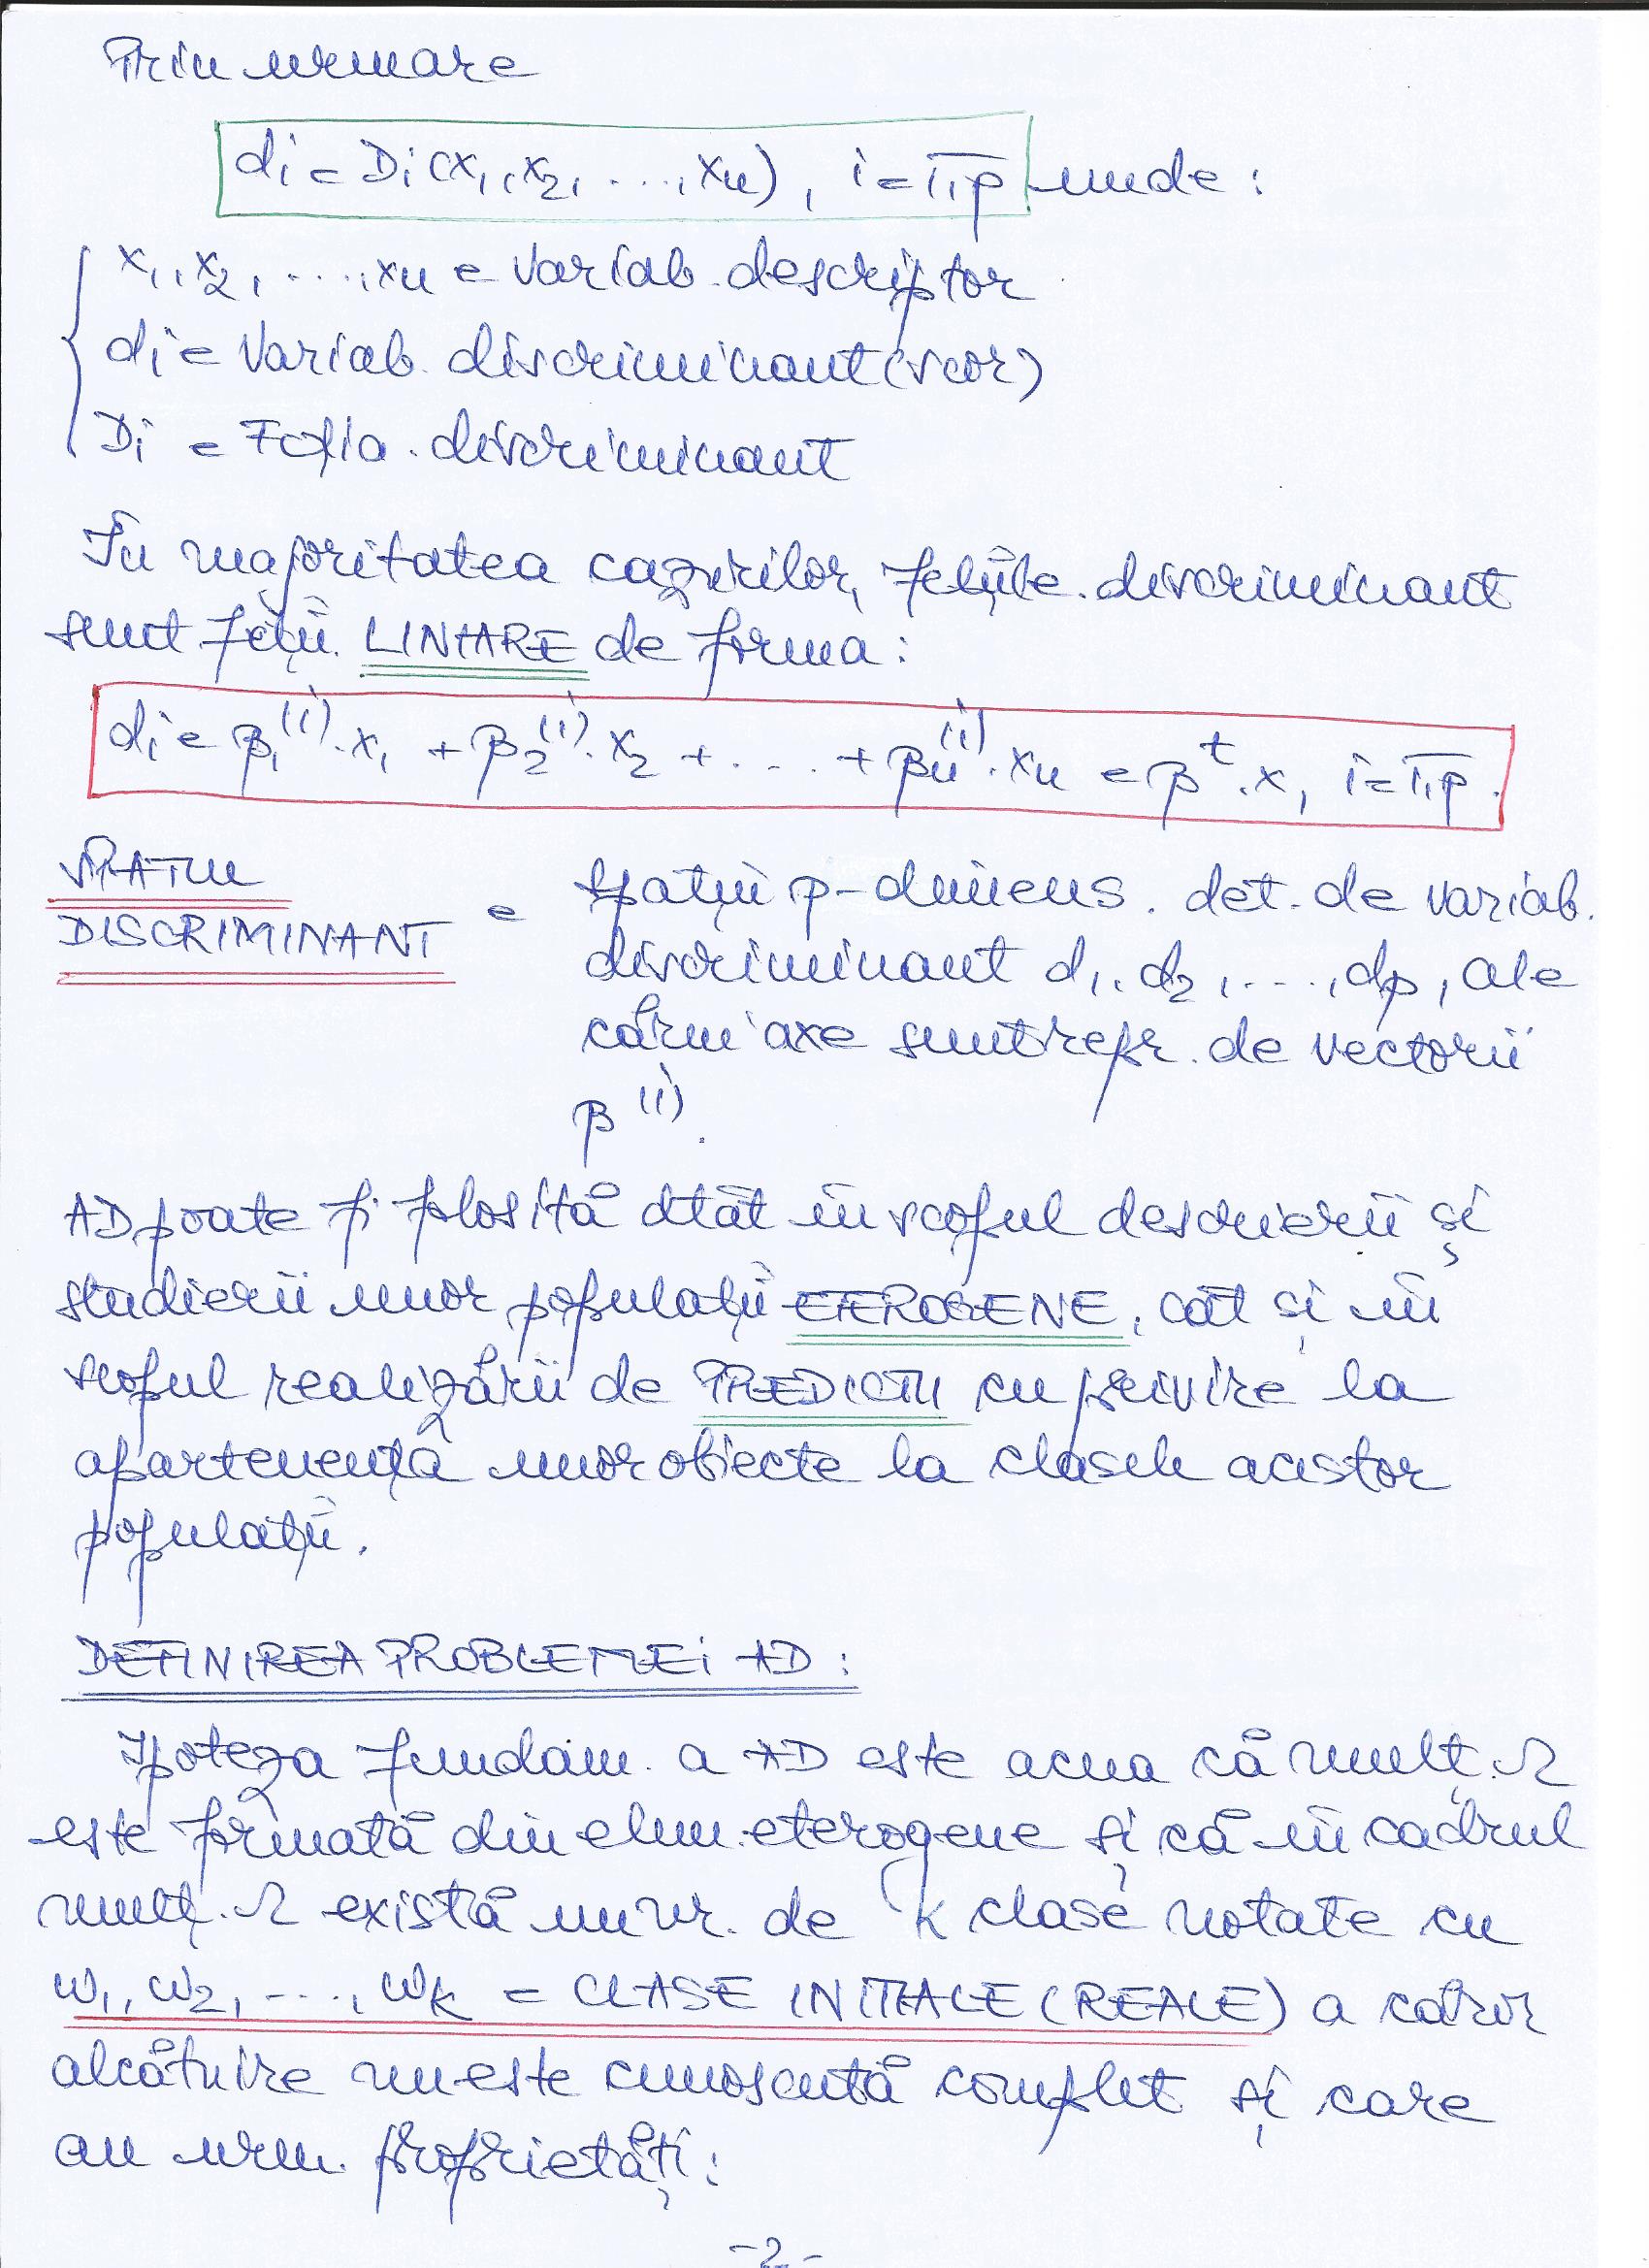 Prin urmare
di = Di(x1, x2, ..., xn), i = 1,p unde:
x1, x2, ..., xn = variab. descriptor
di = variab. discriminant (scor)
Di = Fcția. discriminant
În majoritatea cazurilor, fcțiile. discriminant
sunt fcții. LINIARE de forma:
di = β1^(i)·x1 + β2^(i)·x2 + ... + βn^(i)·xn = β^t·x, i = 1,p.
SPATIU DISCRIMINANT = spațiu p-dimens. det. de variab.
discriminant d1, d2, ..., dp, ale
cărui axe sunt repr. de vectorii
β^(i).
AD poate fi folosită atât în scopul descrierii și
studierii unor populații ETEROGENE, cât și în
scopul realizării de PREDICTII cu privire la
apartenența unor obiecte la clasele acestor
populații.
DEFINIREA PROBLEMEI AD:
Ipoteza fundam. a AD este aceea că mulț. Ω
este formată din elem. eterogene și că în cadrul
mulț. Ω există un nr. de K clase notate cu
ω1, ω2, ..., ωk = CLASE INITIALE (REALE) a căror
alcătuire nu este cunoscută complet și care
au urm. proprietăți:
-2-